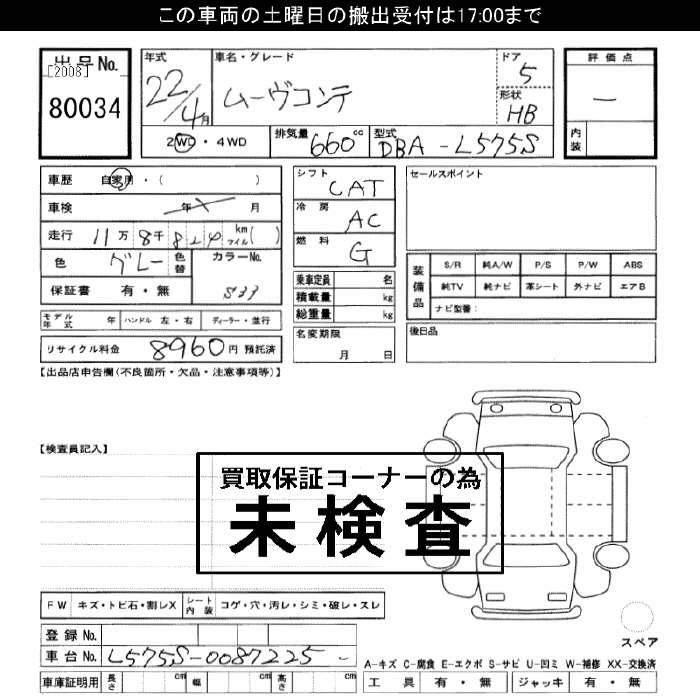 この車両の土曜日の搬出受付は17:00まで
出品No.
[2008]
80034
年式
22/4月
車名・グレード
ムーヴコンテ
ドア
5
形状
HB
評価点
—
内装
2WD・4WD
排気量
660cc
型式
DBA-L575S
車歴 自家用・( )
車検 年 月
走行 11万8千820 km マイル( )
色 グレー 色替
カラーNo.
S39
保証書 有・無
モデル年式 年 ハンドル 左・右 ディーラー・並行
リサイクル料金 8960円 預託済
シフト
CAT
冷房
AC
燃料
G
乗車定員 名
積載量 kg
総重量 kg
名変期限
月 日
セールスポイント
装備品
S/R 純A/W P/S P/W ABS
純TV 純ナビ 革シート 外ナビ エアB
ナビ型番:
後日品
【出品店申告欄(不良箇所・欠品・注意事項等)】
【検査員記入】
買取保証コーナーの為
未検査
FW キズ・トビ石・割レX シート内装 コゲ・穴・汚レ・シミ・破レ・スレ
登録No.
車台No. L575S-0087225-
車庫証明用 長さ cm 幅 cm 高さ cm
スペア
A-キズ C-腐食 E-エクボ S-サビ U-凹ミ W-補修 XX-交換済
工具 有・無 ジャッキ 有・無